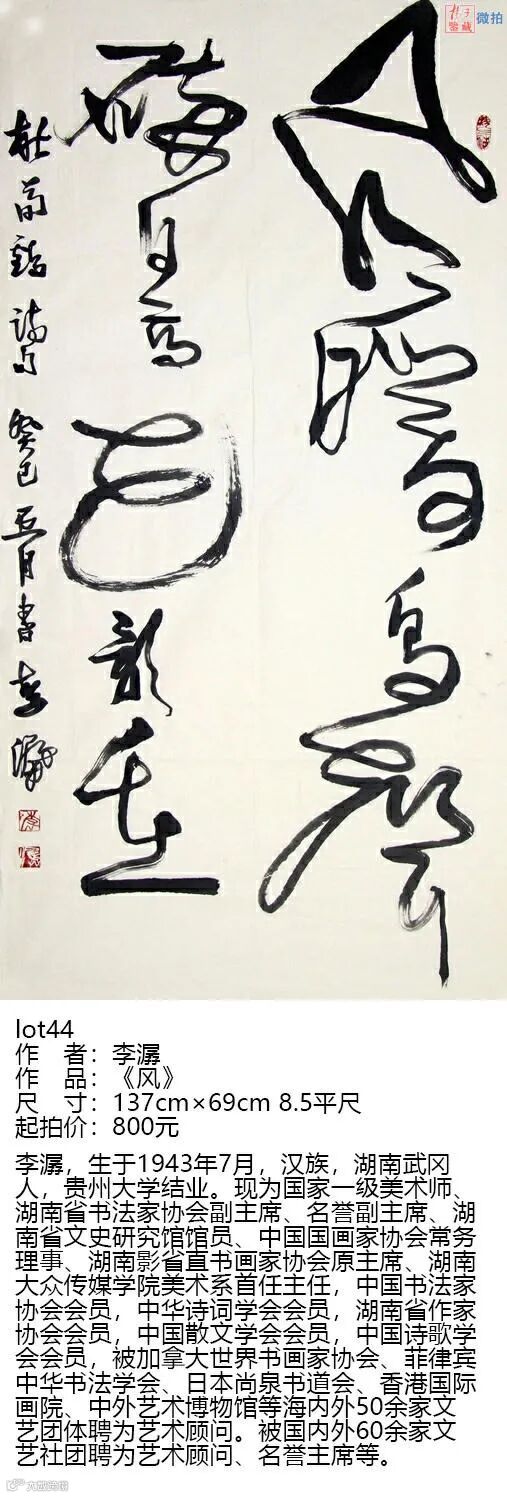 微拍
风暖鸟聲
碎日高花影重
杜荀鶴詩句 癸巳五月書 李潺
lot44
作 者：李潺
作 品：《风》
尺 寸：137cm×69cm 8.5平尺
起拍价：800元
李潺，生于1943年7月，汉族，湖南武冈
人，贵州大学结业。现为国家一级美术师、
湖南省书法家协会副主席、名誉副主席、湖
南省文史研究馆馆员、中国国画家协会常务
理事、湖南影省直书画家协会原主席、湖南
大众传媒学院美术系首任主任，中国书法家
协会会员，中华诗词学会会员，湖南省作家
协会会员，中国散文学会会员，中国诗歌学
会会员，被加拿大世界书画家协会、菲律宾
中华书法学会、日本尚泉书道会、香港国际
画院、中外艺术博物馆等海内外50余家文
艺团体聘为艺术顾问。被国内外60余家文
艺社团聘为艺术顾问、名誉主席等。